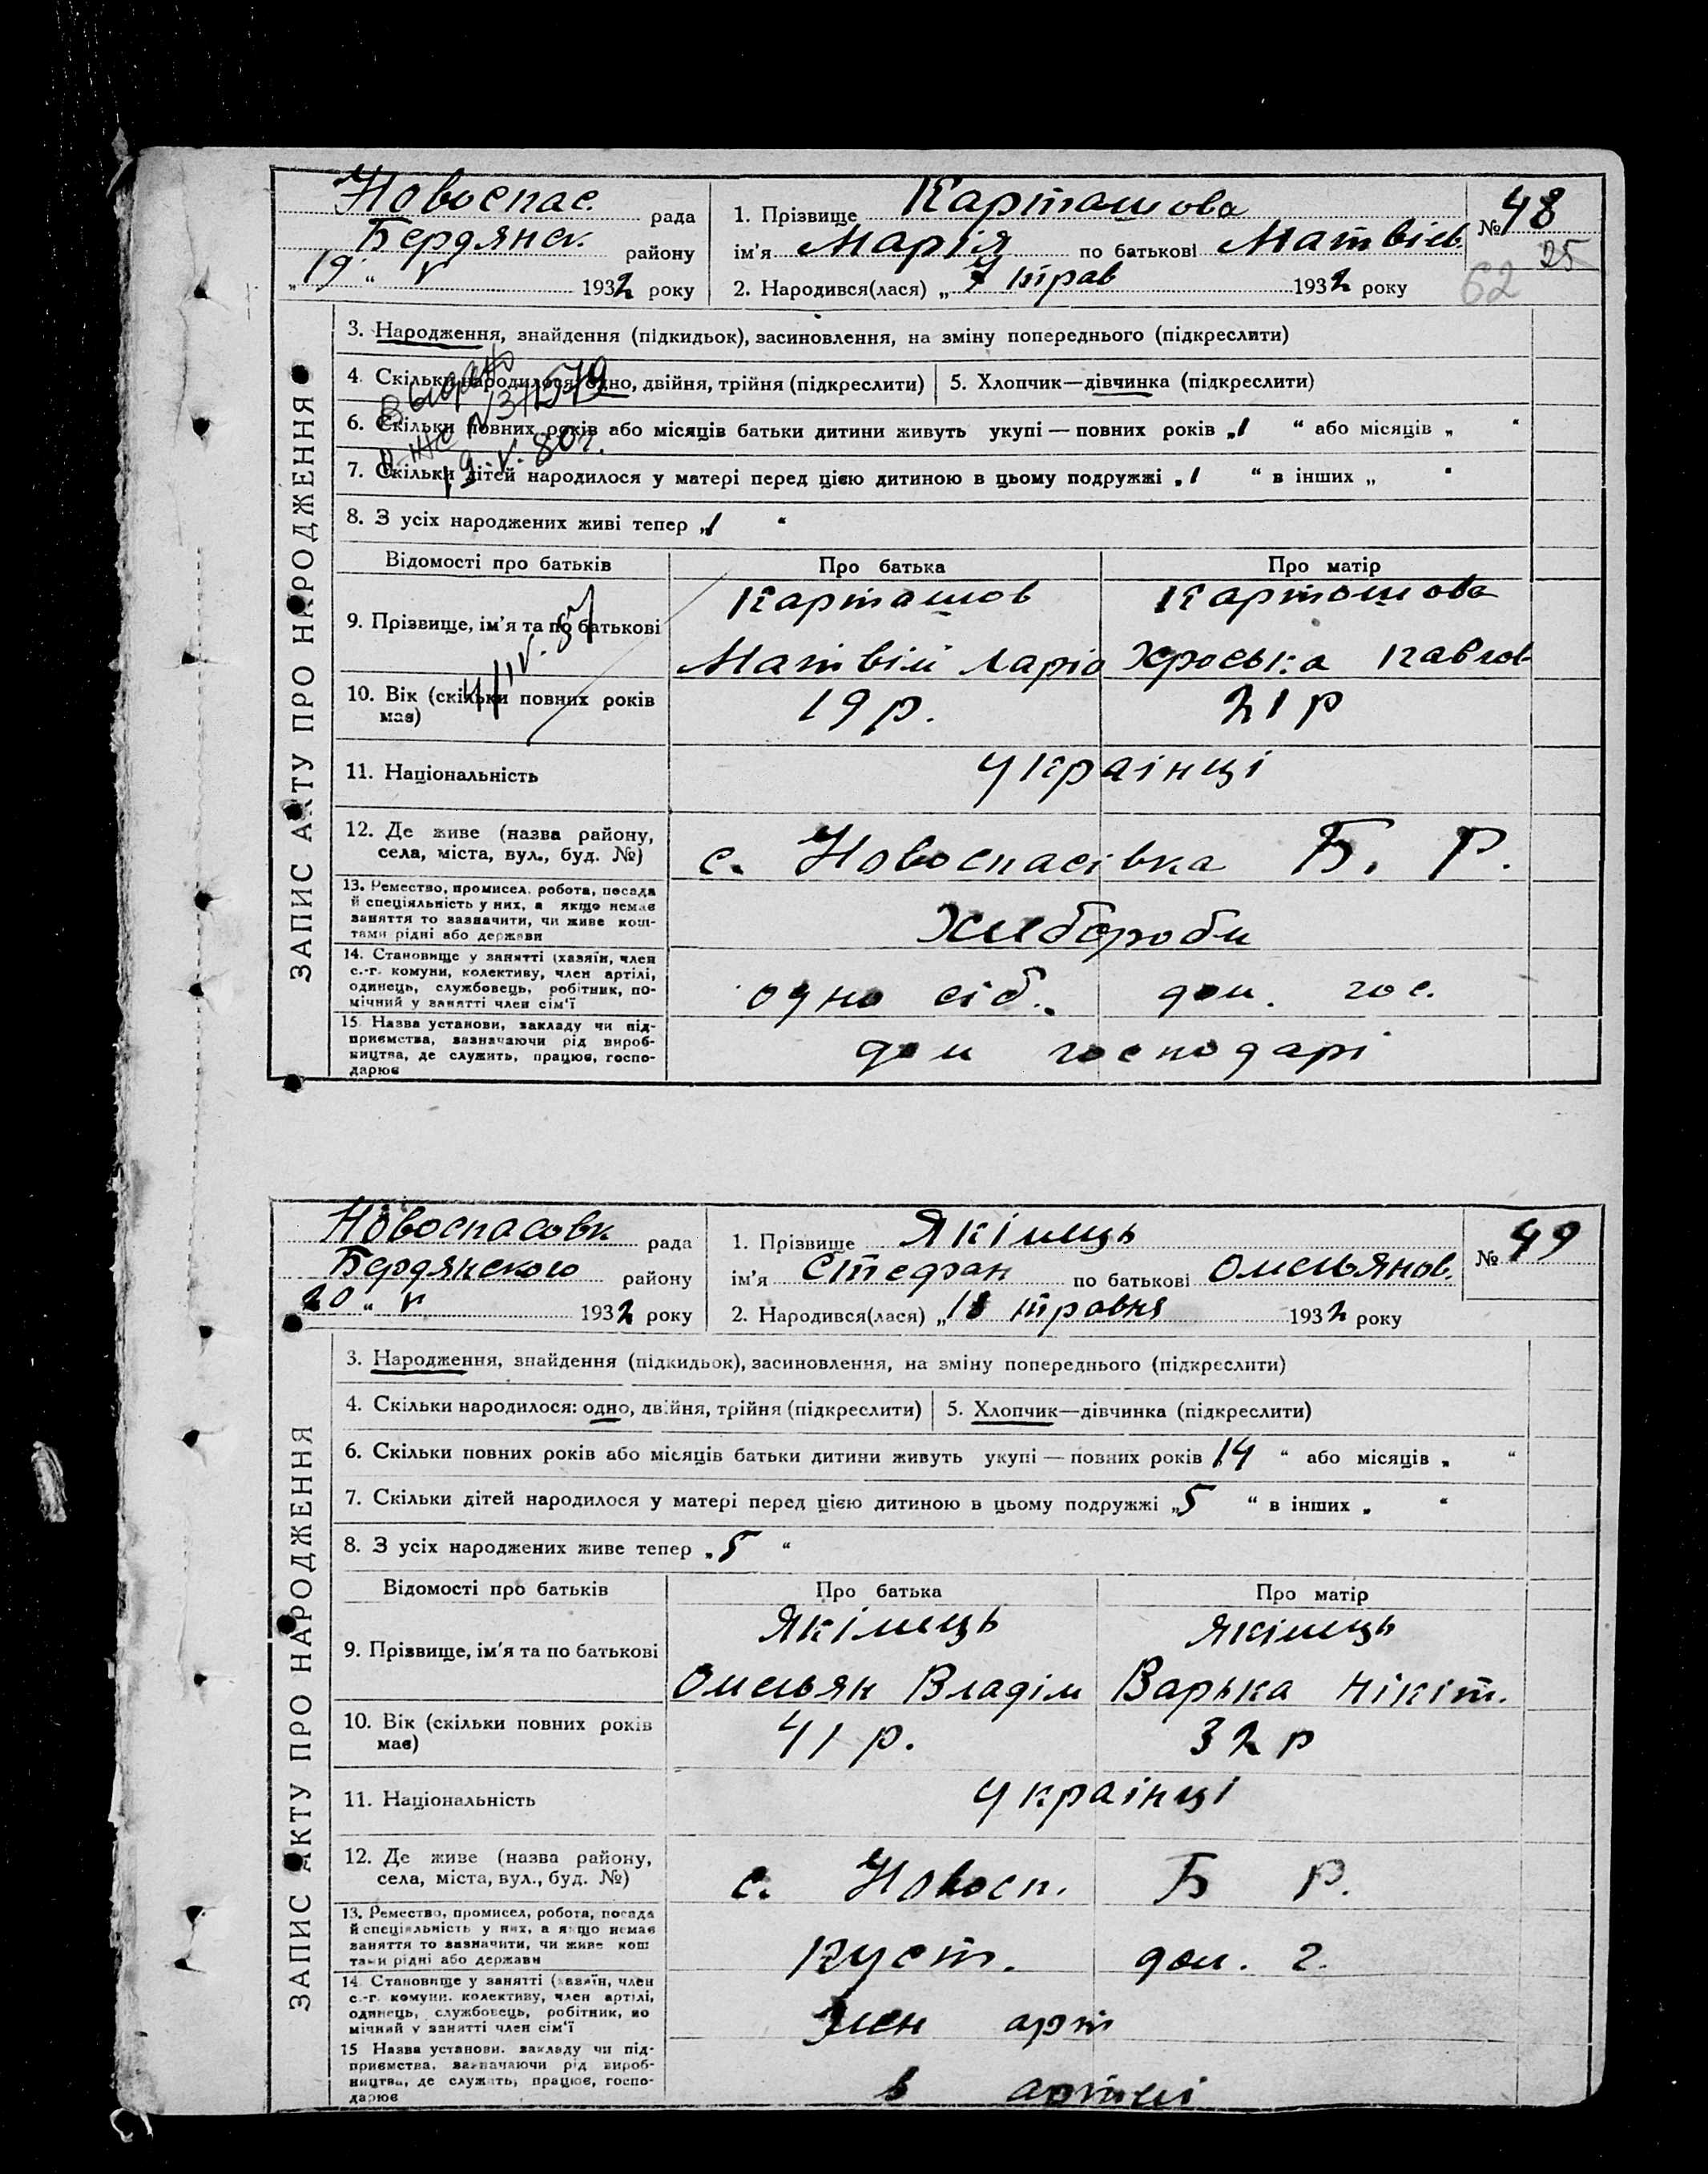 Новоспас. рада
Бердянск. району
„19“ V 1932 року
1. Прізвище Карташова
ім'я Марія по батькові Матвіев.
2. Народився(лася) „ трав 1932 року
№ 48
25
62
ЗАПИС АКТУ ПРО НАРОДЖЕННЯ
3. Народження, знайдення (підкидьок), засиновлення, на зміну попереднього (підкреслити)
4. Скільки народилося: одно, двійня, трійня (підкреслити) 5. Хлопчик—дівчинка (підкреслити)
6. Скільки повних років або місяців батьки дитини живуть укупі — повних років „1“ або місяців „ “
7. Скільки дітей народилося у матері перед цією дитиною в цьому подружжі „1“ в інших „ “
8. З усіх народжених живі тепер „1“
19.V.80г.
Відомості про батьків Про батька Про матір
9. Прізвище, ім'я та по батькові
Карташов Карташова
Матвій Ларіо Хроська Павлов
10. Вік (скільки повних років
має)
19 р. 21 р
11. Національність українці
12. Де живе (назва району,
села, міста, вул., буд. №)
с. Новоспасівка Б. Р.
13. Ремество, промисел, робота, посада
й спеціяльність у них, а якщо немає
заняття то зазначити, чи живе кош-
тами рідні або держави
Хлебороби
14. Становище у занятті (хазяїн, член
с.-г. комуни, колективу, член артілі,
одинець, службовець, робітник, по-
мічний у занятті член сім'ї
одно сіб. дом. гос.
15. Назва установи, закладу чи під-
приємства, зазначаючи рід вироб-
ництва, де служить, працює, госпо-
дарює
дом господарі
Новоспасовк рада
Бердянского району
20 “ V 1932 року
1. Прізвище Якімець
ім'я Стефан по батькові Омельянов.
2. Народився(лася) „ травня 1932 року
№ 49
ЗАПИС АКТУ ПРО НАРОДЖЕННЯ
3. Народження, знайдення (підкидьок), засиновлення, на зміну попереднього (підкреслити)
4. Скільки народилося: одно, двійня, трійня (підкреслити) 5. Хлопчик—дівчинка (підкреслити)
6. Скільки повних років або місяців батьки дитини живуть укупі — повних років 14 “ або місяців „ “
7. Скільки дітей народилося у матері перед цією дитиною в цьому подружжі „5 “ в інших „ “
8. З усіх народжених живе тепер „5 “
Відомості про батьків Про батька Про матір
9. Прізвище, ім'я та по батькові
Якімець Якімець
Омельян Владім Варька Нікіт.
10. Вік (скільки повних років
має)
41 р. 32 р
11. Національність українці
12. Де живе (назва району,
села, міста, вул., буд. №)
с. Новосп. Б Р.
13. Ремество, промисел, робота, посада
й спеціяльність у них, а якщо немає
заняття то зазначити, чи живе кош
тами рідні або держави
куст. дом. г.
14. Становище у занятті (хазяїн, член
с.-г. комуни, колективу, член артілі,
одинець, службовець, робітник, по
мічний у занятті член сім'ї
член арт
15 Назва установи, закладу чи під-
приємства, зазначаючи рід вироб-
ництва, де служить, працює, госпо-
дарює
в артілі